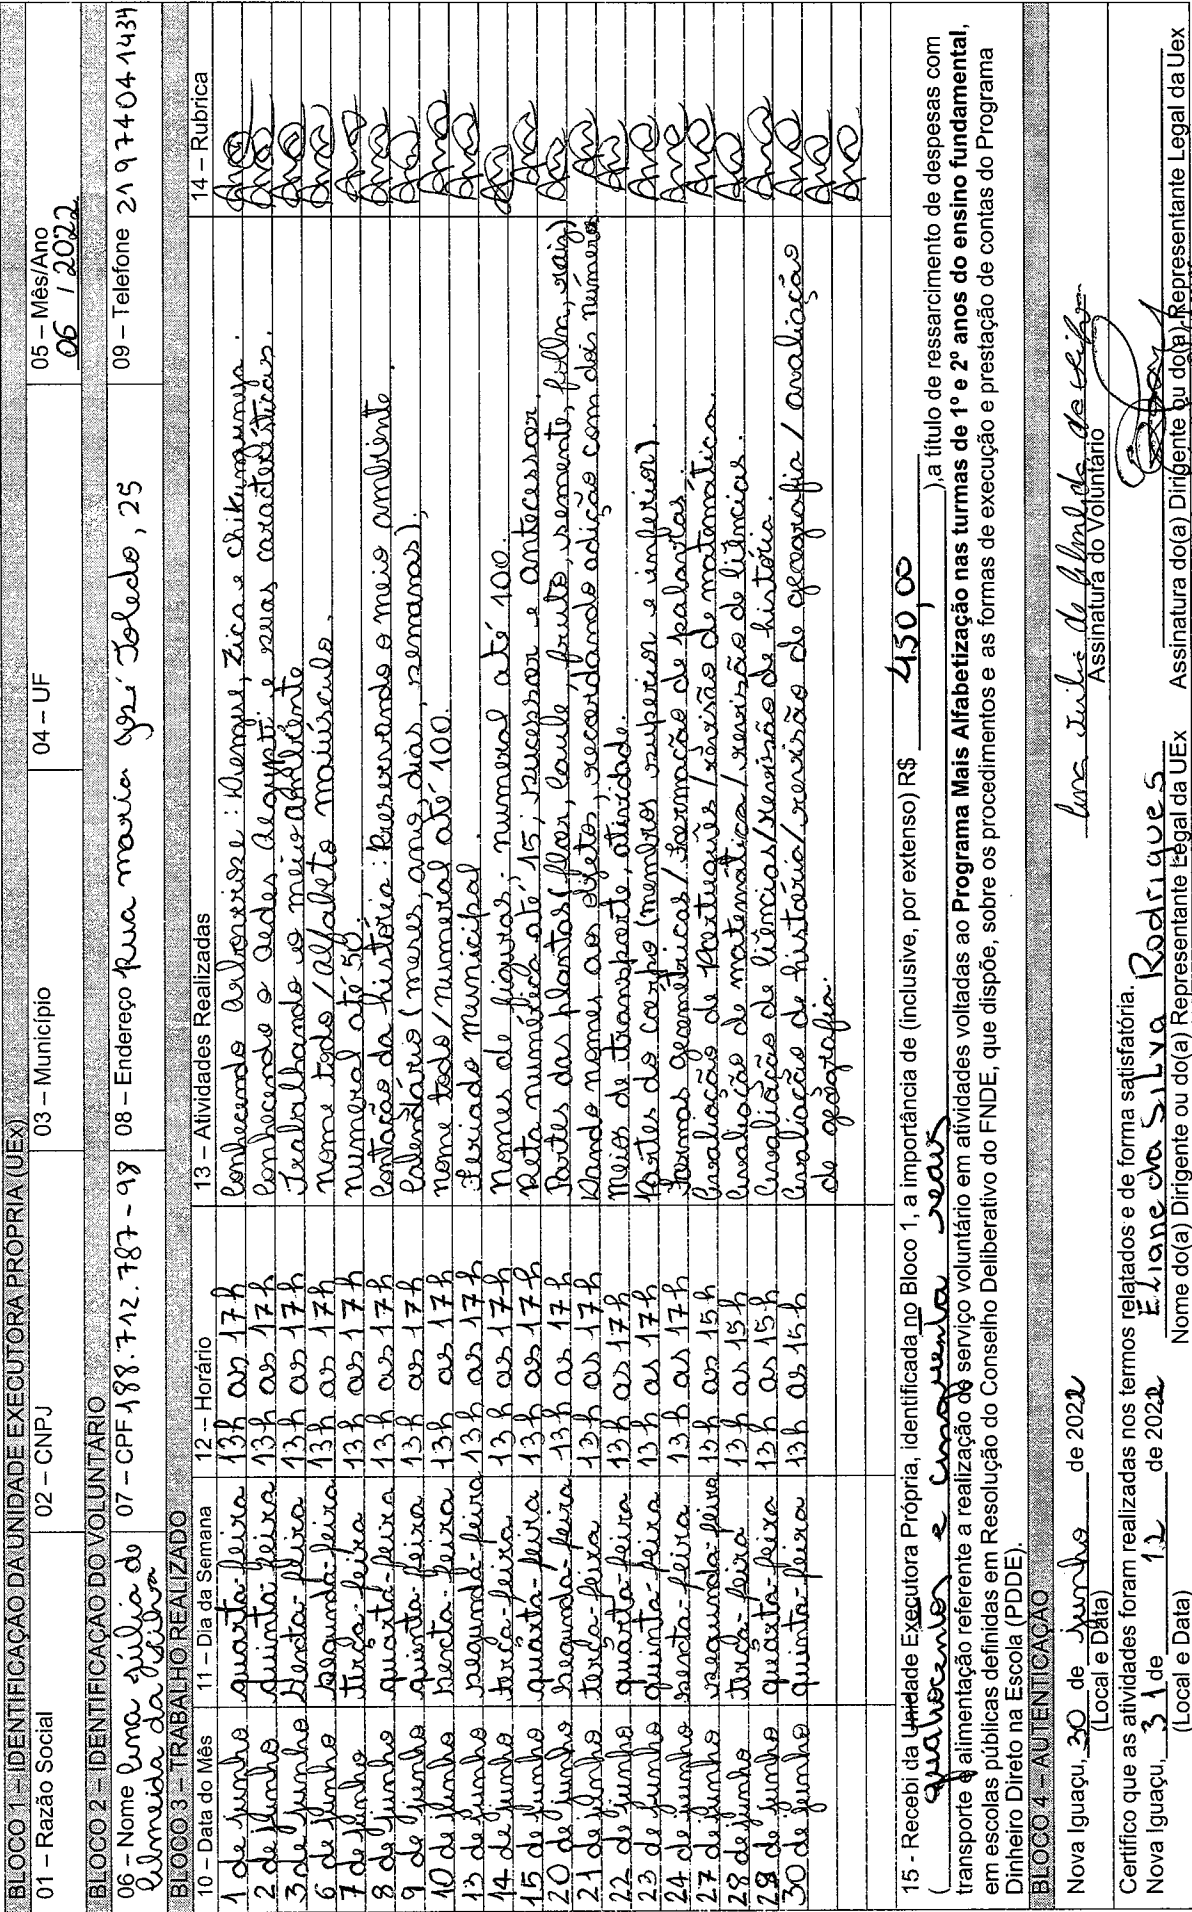 BLOCO 1 – IDENTIFICAÇÃO DA UNIDADE EXECUTORA PRÓPRIA (UEx)
01 – Razão Social 02 – CNPJ 03 – Município 04 – UF 05 – Mês/Ano
06 / 2022
BLOCO 2 – IDENTIFICAÇÃO DO VOLUNTÁRIO
06 – Nome Ana Júlia de 07 – CPF 188.712.787-98 08 – Endereço Rua maria José Toledo, 25 09 – Telefone 21 97404 1434
Almeida da Silva
BLOCO 3 – TRABALHO REALIZADO
10 – Data do Mês 11 – Dia da Semana 12 – Horário 13 – Atividades Realizadas 14 – Rubrica
1 de junho quarta-feira 13h as 17h Conhecendo Arbovirose: Dengue, Zica e Chikumunya. Ana
2 de junho quinta-feira 13h as 17h Conhecendo o aedes Aegypti e suas caracteristicas. Ana
3 de junho Sexta-feira 13h as 17h Trabalhando o meio ambiente Ana
6 de junho Segunda-feira 13h as 17h nome todo/alfabeto maiúsculo. Ana
7 de junho terça-feira 13h as 17h numeral até 50 Ana
8 de junho quarta-feira 13h as 17h Contação da história: Preservando o meio ambiente. Ana
9 de junho quinta-feira 13h as 17h Calendário (meses, ano, dias, semanas). Ana
10 de junho sexta-feira 13h as 17h nome todo/numeral até 100. Ana
13 de junho segunda-feira 13h as 17h Feriado municipal Ana
14 de junho terça-feira 13h as 17h Nomes de figuras; numeral até 100. Ana
15 de junho quarta-feira 13h as 17h Reta numérica até 15; sucessor e antecessor. Ana
20 de junho Segunda-feira 13h as 17h Partes das plantas (flor, caule, fruto, semente, folha, raiz) Ana
21 de junho terça-feira 13h as 17h Dando nomes aos objetos, recordando adição com dois números Ana
22 de junho quarta-feira 13h as 17h Meios de transporte, atividade. Ana
23 de junho quinta-feira 13h as 17h Partes do corpo (membros superior e inferior). Ana
24 de junho sexta-feira 13h as 17h Formas geométricas/formação de palavras. Ana
27 de junho segunda-feira 13h as 15h Avaliação de Português/revisão de matemática. Ana
28 de junho terça-feira 13h as 15h Avaliação de matemática/revisão de Ciências. Ana
29 de junho quarta-feira 13h as 15h Avaliação de Ciências/revisão de história. Ana
30 de junho quinta-feira 13h as 15h Avaliação de história/revisão de geografia/avaliação Ana
de geografia. Ana
15 - Recebi da Unidade Executora Própria, identificada no Bloco 1, a importância de (inclusive, por extenso) R$ 450,00
(quatrocentos e cinquenta reais), a título de ressarcimento de despesas com
transporte e alimentação referente a realização de serviço voluntário em atividades voltadas ao Programa Mais Alfabetização nas turmas de 1º e 2º anos do ensino fundamental,
em escolas públicas definidas em Resolução do Conselho Deliberativo do FNDE, que dispõe, sobre os procedimentos e as formas de execução e prestação de contas do Programa
Dinheiro Direto na Escola (PDDE).
BLOCO 4 – AUTENTICAÇÃO
Nova Iguaçu, 30 de junho de 2022 Ana Júlia de Almeida da Silva
(Local e Data) Assinatura do Voluntário
Certifico que as atividades foram realizadas nos termos relatados e de forma satisfatória.
Nova Iguaçu, 31 de 12 de 2022 Eliane da Silva Rodrigues
(Local e Data) Nome do(a) Dirigente ou do(a) Representante Legal da UEx Assinatura do(a) Dirigente ou do(a) Representante Legal da Uex